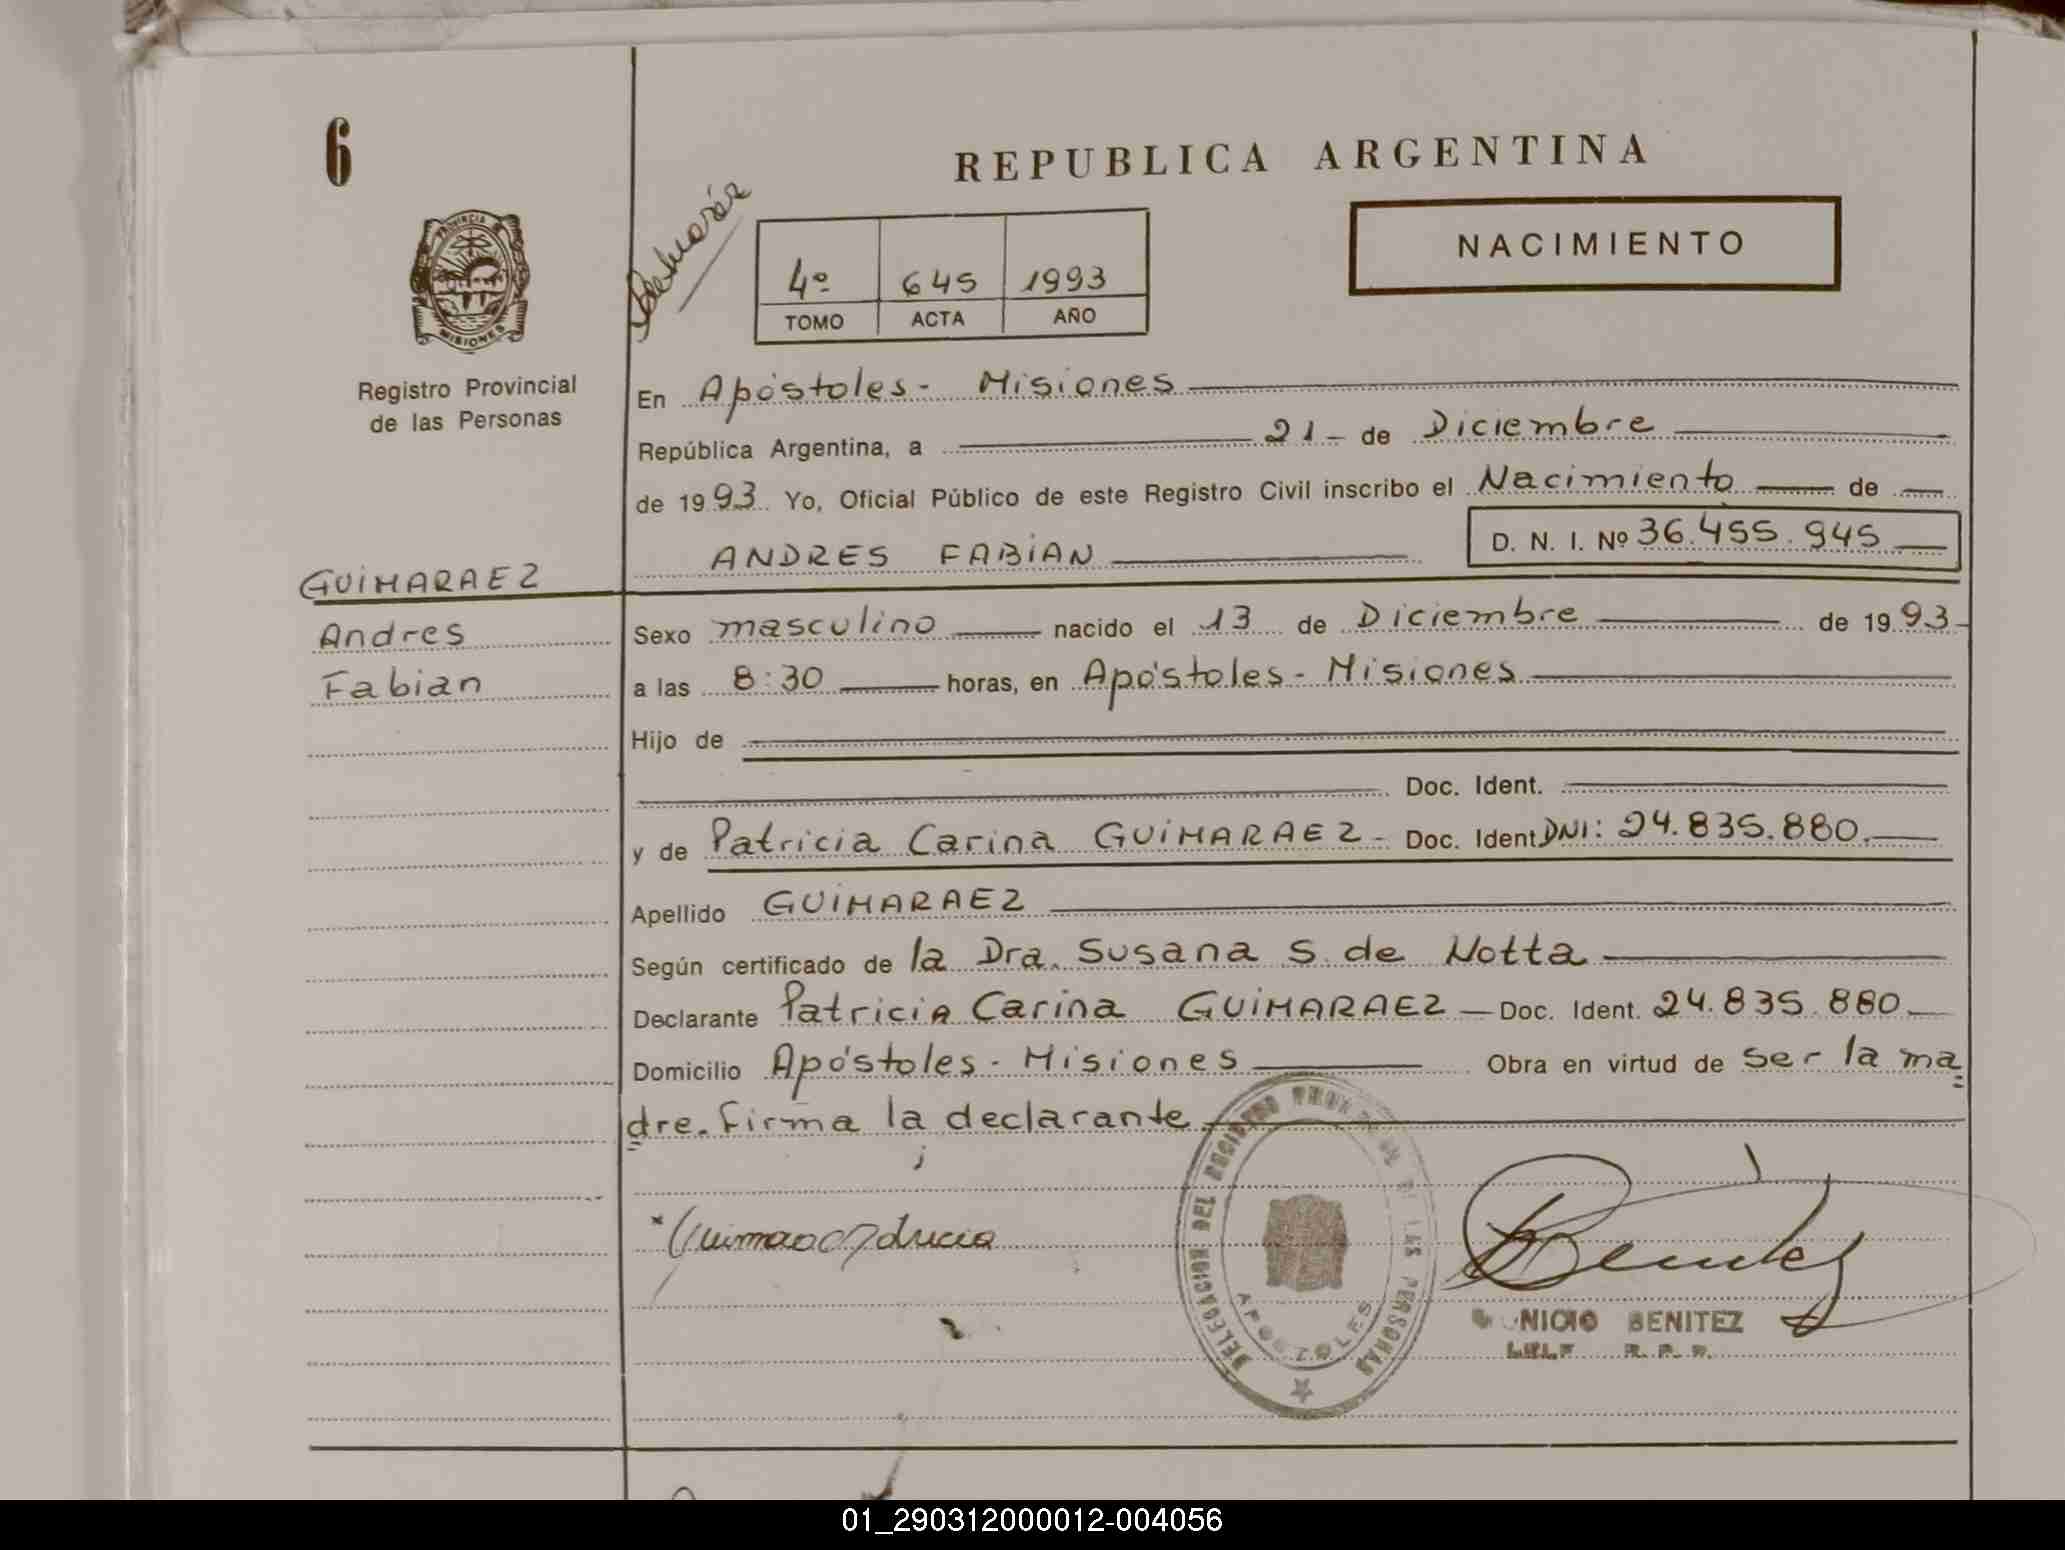 6
REPUBLICA ARGENTINA
NACIMIENTO
PROVINCIA
MISIONES
4º 645 1993
TOMO ACTA AÑO
Registro Provincial
de las Personas
En Apóstoles - Misiones
República Argentina, a 21 - de Diciembre
de 1993. Yo, Oficial Público de este Registro Civil inscribo el Nacimiento de
D. N. I. Nº 36.455.945
ANDRES FABIAN
GUIMARAEZ
Andres
Fabian
Sexo masculino nacido el 13 de Diciembre de 1993
a las 8:30 horas, en Apóstoles - Misiones
Hijo de
Doc. Ident.
y de Patricia Carina GUIMARAEZ - Doc. Ident. DNI: 24.835.880.
Apellido GUIMARAEZ
Según certificado de la Dra. Susana S. de Notta
Declarante Patricia Carina GUIMARAEZ - Doc. Ident. 24.835.880
Domicilio Apóstoles - Misiones Obra en virtud de ser la ma
dre. Firma la declarante
DELEGACION DEL REGISTRO PERSONAS
APOSTOLES
Benitez
BENITEZ
R. P. P.
01_290312000012-004056